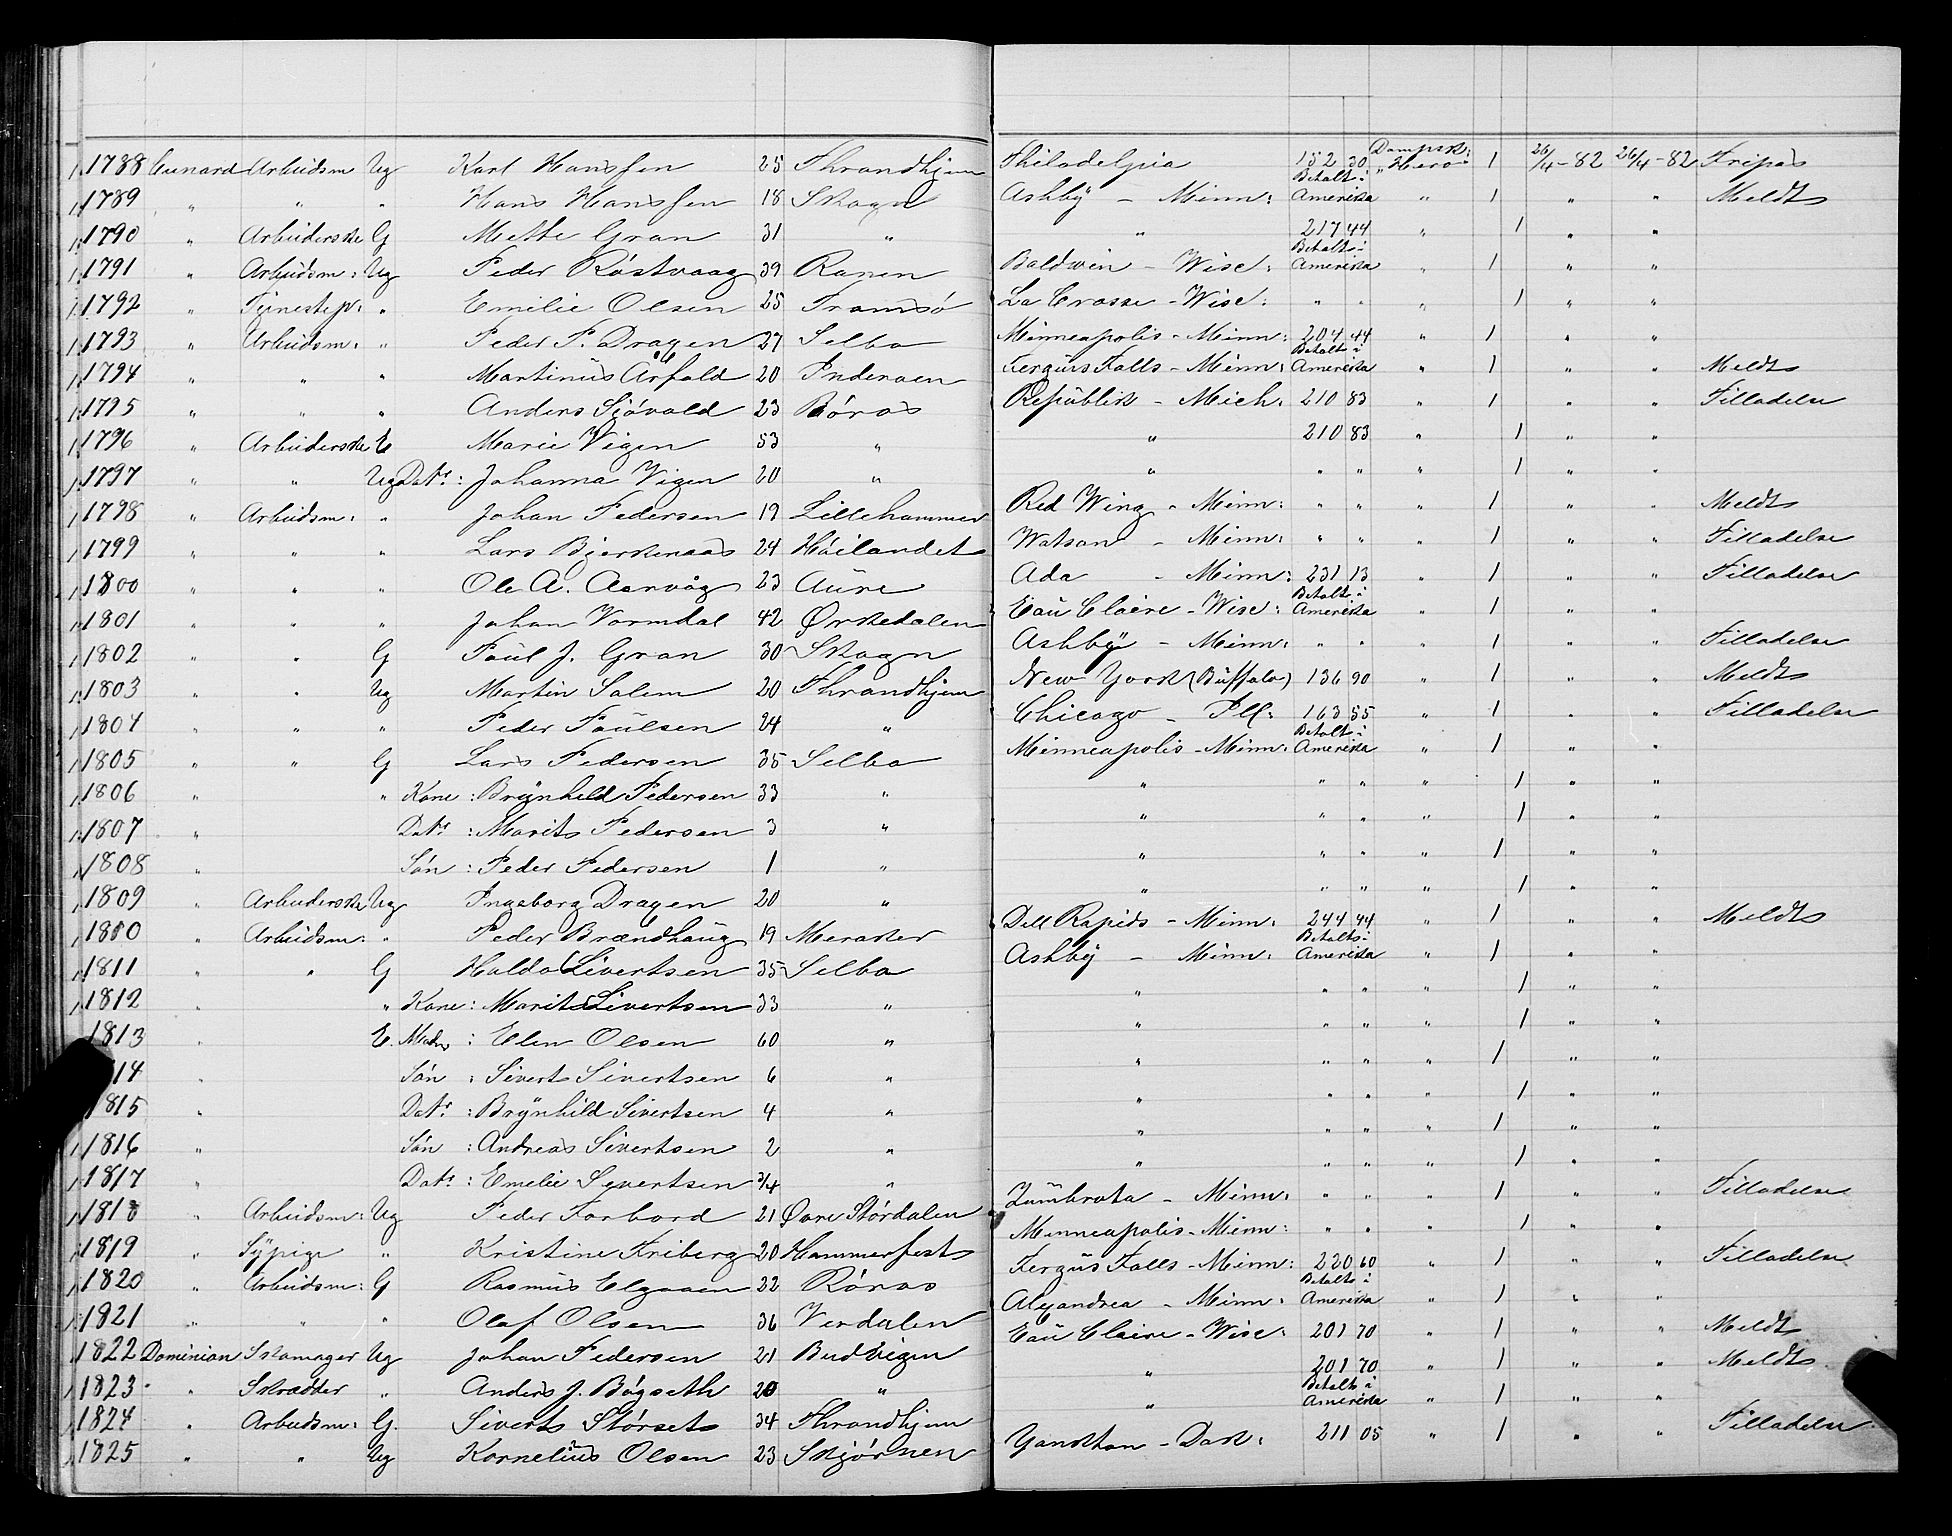 1788 Cunard Arbeidsm Ug Karl Hanssen 25 Thrandhjem Philadelpia 152 30 Dampsk: "Hero" 1 26/4-82 26/4-82 Fripas
1789 " " " Hans Hanssen 18 Skogn Ashby - Minn: Betalt i Amerika " 1 " " Meldt
1790 " Arbeiderske G Mette Gran 31 " " 217 44 " 1 " "
1791 " Arbeidsm: Ug Peder Röstvaag 39 Ranen Baldwin - Wisc: Betalt i Amerika " 1 " "
1792 " Tjenestep: " Emilie Olsen 25 Tromsö La Crosse - Wisc: " " " 1 " "
1793 " Arbeidsm: " Peder P. Dragen 27 Selbo Minneapolis - Minn: 204 44 " 1 " "
1794 " " " Martinus Aafald 20 Inderöen Fergus Falls - Minn: Betalt i Amerika " 1 " " Meldt
1795 " " " Anders Sjövold 23 Röros Republik - Mich: 210 83 " 1 " " Tilladelse
1796 " Arbeiderske E Marie Vigen 53 " " 210 83 " 1 " "
1797 " " Ug Datr: Johanna Vigen 20 " " " " " 1 " "
1798 " Arbeidsm: " Johan Pedersen 19 Lillehammer Red Wing - Minn: " " " 1 " " Meldt
1799 " " " Lars Bjerkenaas 24 Höilandet Watson - Minn: " " " 1 " " Tilladelse
1800 " " " Ole A. Aarvåg 23 Aure Ada - Minn: 231 13 " 1 " " Tilladelse
1801 " " " Johan Vormdal 42 Ørkedalen Eau Claire - Wisc: Betalt i Amerika " 1 " "
1802 " " G Paul J. Gran 30 Skogn Ashby - Minn: " " " 1 " " Tilladelse
1803 " " Ug Martin Salem 20 Thrandhjem New York (Buffalo) 136 90 " 1 " " Meldt
1804 " " " Peder Paulsen 24 " Chicago - Ill: 163 55 " 1 " " Tilladelse
1805 " " G Lars Pedersen 35 Selbo Minneapolis - Minn: Betalt i Amerika " 1 " "
1806 " " Kone: Brynhild Pedersen 33 " " " " " 1 " "
1807 " Datr: Marit Pedersen 3 " " " " " 1 " "
1808 " Sön: Peder Pedersen 1 " " " " " 1 " "
1809 " Arbeiderske Ug Ingeborg Dragen 20 " " " " " 1 " "
1810 " Arbeidsm: " Peder Brændhaug 19 Meraker Dell Rapids - Minn: 244 44 " 1 " " Meldt
1811 " " G Haldo Sivertsen 35 Selbo Ashby - Minn: Betalt i Amerika " 1 " "
1812 " " Kone: Marit Sivertsen 33 " " " " " 1 " "
1813 " E. Moder: Elen Olsen 60 " " " " " 1 " "
14 " Sön: Sivert Sivertsen 6 " " " " " 1 " "
1815 " Datr: Brynhild Sivertsen 4 " " " " " 1 " "
1816 " Sön: Andreas Sivertsen 2 " " " " " 1 " "
1817 " Datr: Emelie Sivertsen 3/4 " " " " " 1 " "
1818 " Arbeidsm: Ug Peder Forbord 21 Övre Stördalen Zumbrota - Minn: " " " 1 " " Tilladelse
1819 " Sypige " Kristine Friberg 20 Hammerfest Minneapolis - Minn: " " " 1 " "
1820 " Arbeidsm: G Rasmus Elgaaen 22 Röros Fergus Falls - Minn: 220 60 " 1 " " Tilladelse
1821 " " " Olaf Olsen 36 Verdalen Alexandrea - Minn: Betalt i Amerika " 1 " "
1822 Dominian Skomager Ug Johan Pedersen 21 Budvigen Eau Claire - Wisc: 201 70 " 1 " " Meldt
1823 " Skrædder " Anders J. Bögseth 20 " " 201 70 " 1 " " Meldt
1824 " Arbeidsm: G. Sivert Störset 34 Thrandhjem " Betalt i Amerika " 1 " "
1825 " " Ug Kornelius Olsen 23 Skjörnen Yankton - Dak: 211 05 " 1 " " Tilladelse